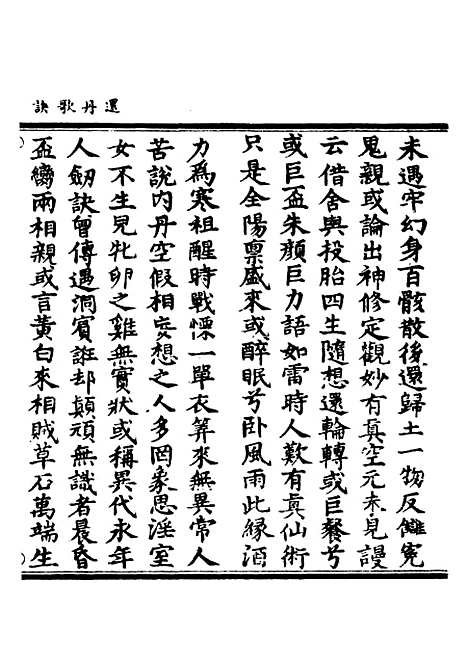 還丹歌訣
未遇牢幻身百骸散後還歸土一物反讎寃
鬼親或論出神修定觀妙有真空元未見謾
云借舍與投胎四生隨想還輪轉或巨餐兮
或巨盃朱顏巨力語如雷時人歎有真仙術
只是全陽禀盛來或醉眠兮卧風雨此縁酒
力為寒祖醒時戰慄一單衣筭來無異常人
苦說内丹空假相妄想之人多罔象思淫室
女不生兒牝卵之雞無實狀或稱異代永年
人劒訣曾傳遇洞賓誑却顛頑無識者晨昏
盃臠兩相親或言黃白來相賊草石萬端生